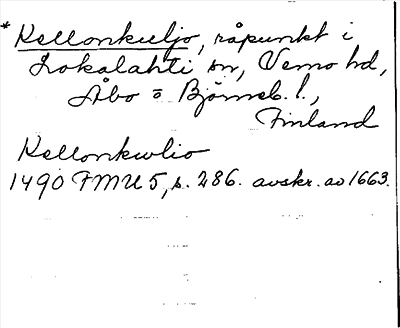 * Kellonkuljo, råpunkt i
Lokalahti sn, Vemo hd,
Åbo o Björneb. l.,
Finland
Kellonkwlio
1490 FMU 5, s. 286. avskr. av 1663.